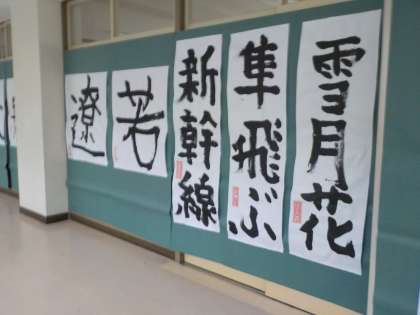 雪月花
隼飛ぶ
新幹線
若
遼